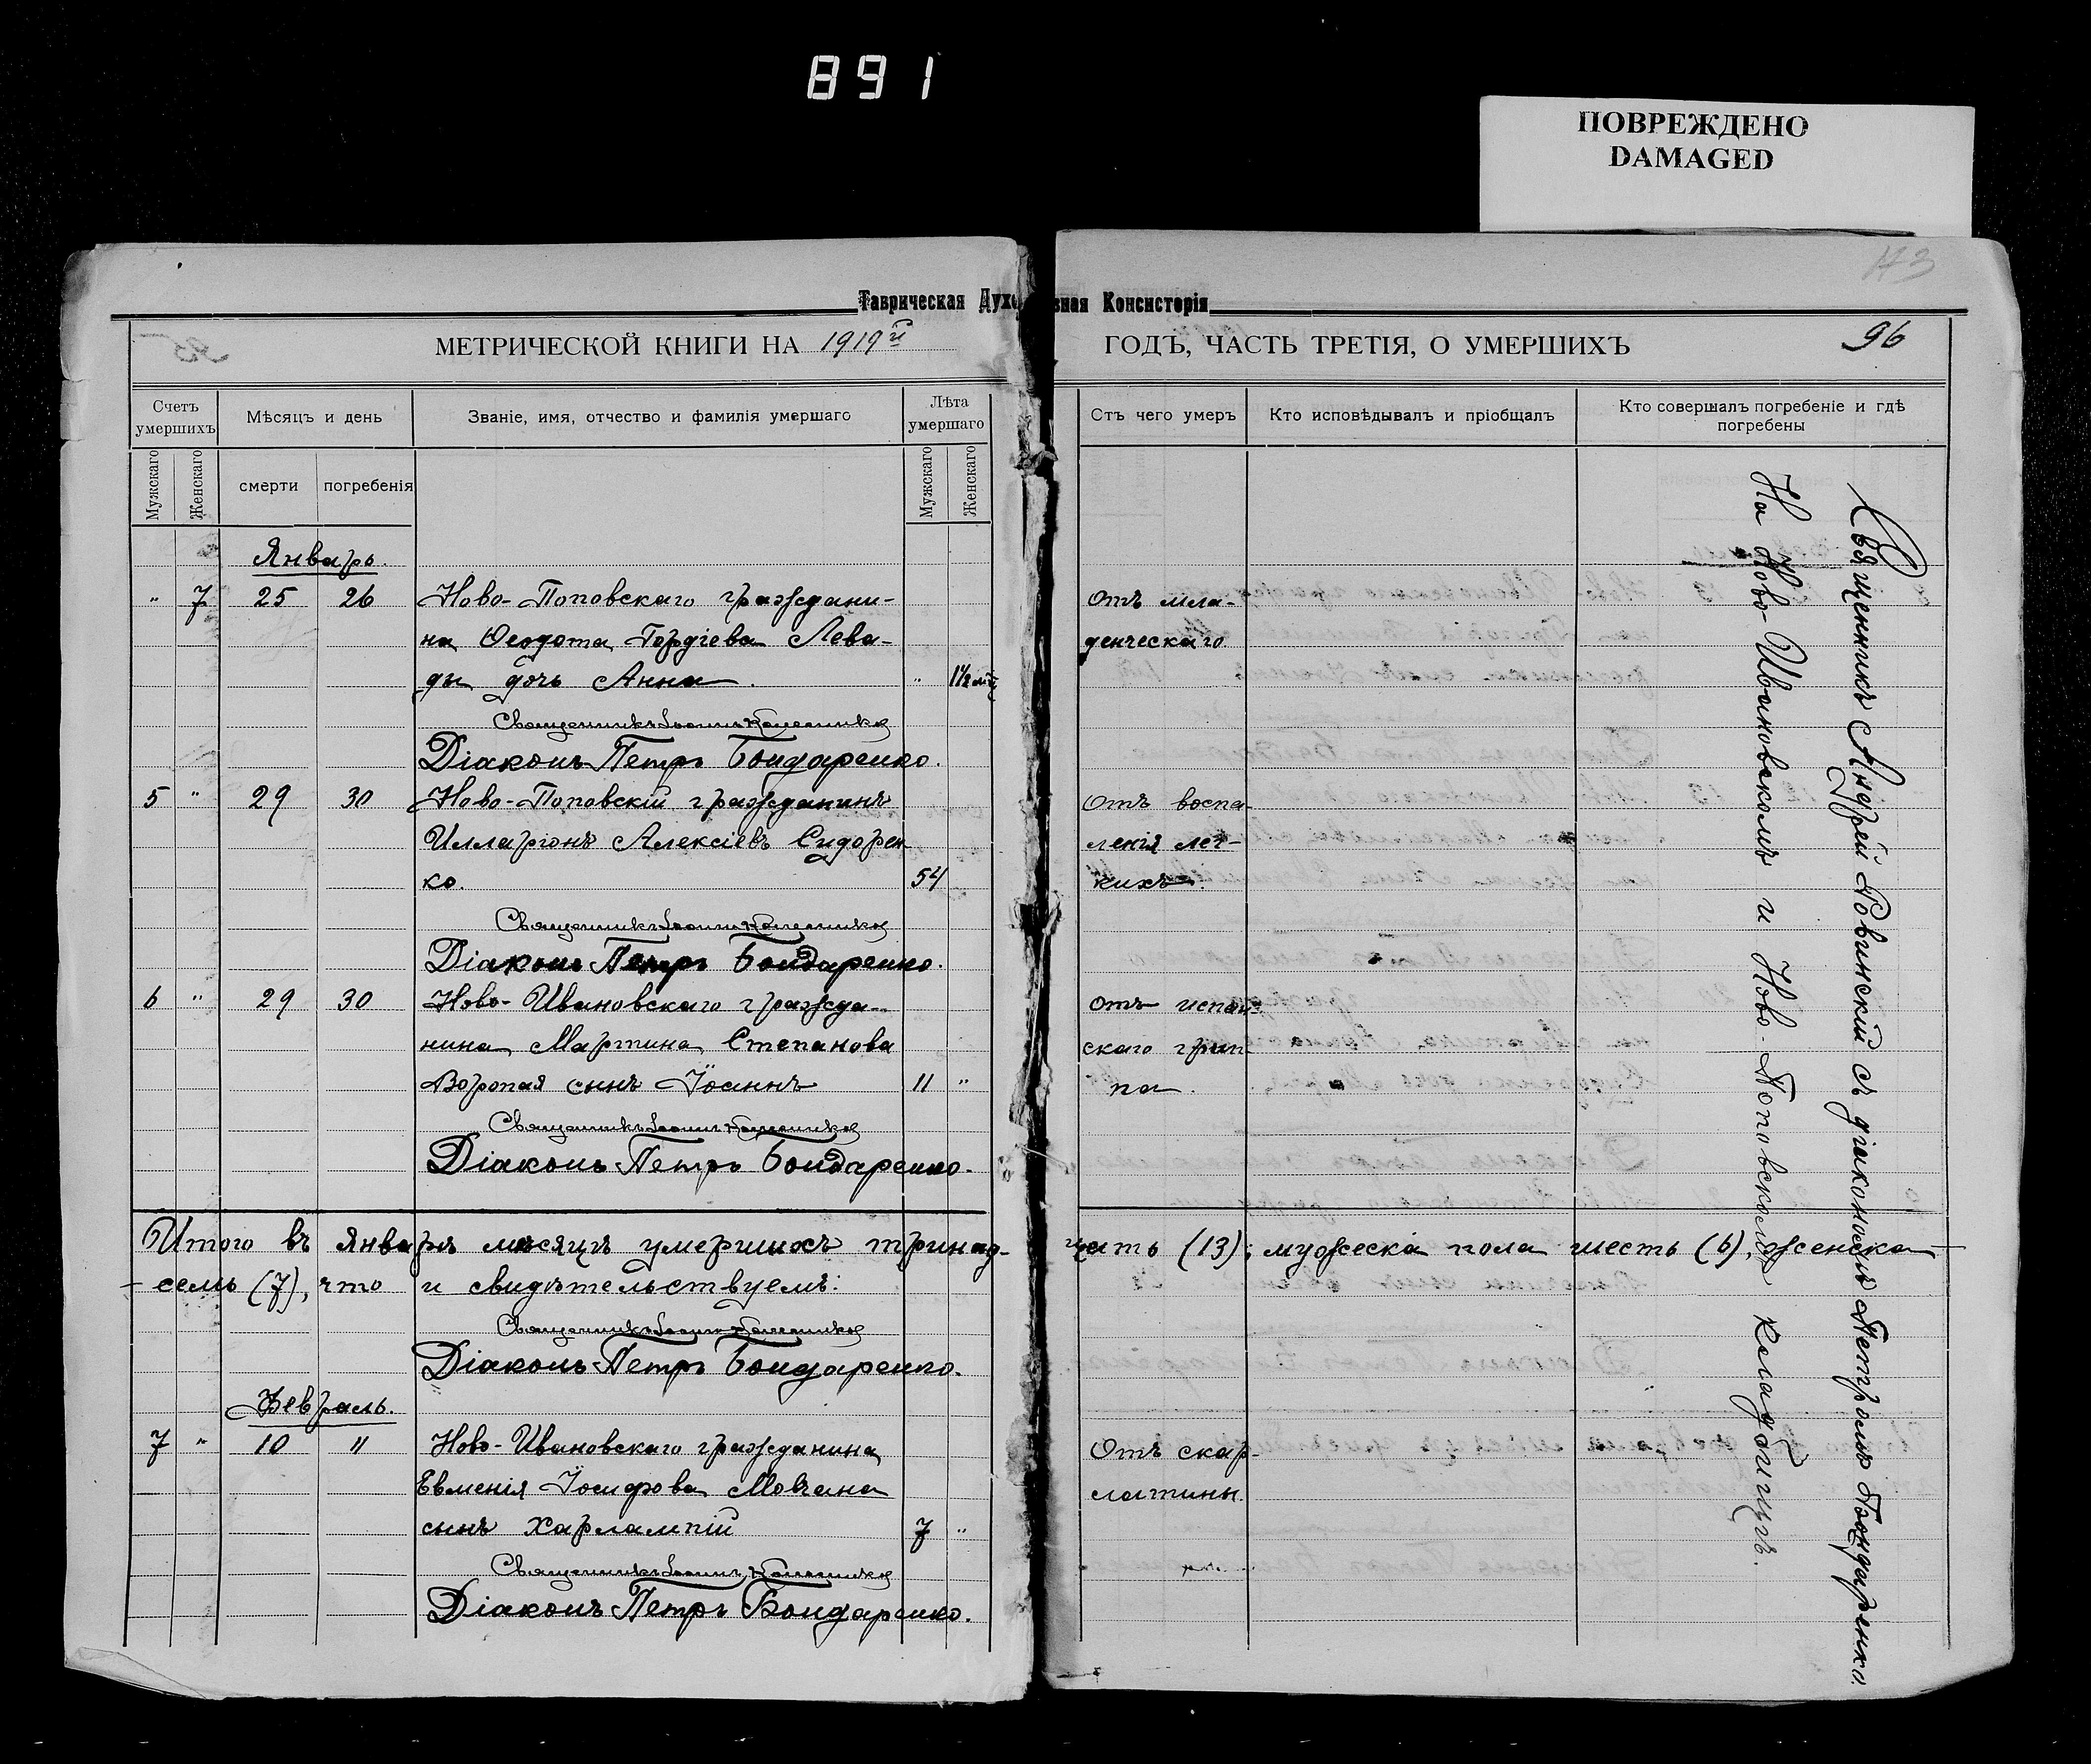 891
ПОВРЕЖДЕНО
DAMAGED
173
Таврическая Духовная Консисторія
МЕТРИЧЕСКОЙ КНИГИ НА 1919й ГОДЪ, ЧАСТЬ ТРЕТІЯ, О УМЕРШИХЪ
96
Счетъ умершихъ
Мѣсяцъ и день
Званіе, имя, отчество и фамилія умершаго
Лѣта умершаго
Стъ чего умеръ
Кто исповѣдывалъ и пріобщалъ
Кто совершалъ погребеніе и гдѣ погребены
Мужскаго
Женскаго
смерти
погребенія
Мужскаго
Женскаго
Январь.
" 7 25 26 Ново-Поповскаго граждани- Отъ мла-
на Ѳеодота Гордіева Лева- денческаго
ды дочь Анна. " 1½
Священникъ Іоаннъ
Діаконъ Петръ Бондаренко.
5 " 29 30 Ново-Поповскій гражданинъ Отъ воспа-
Илларіонъ Алексіевъ Сидорен ленія лег-
ко. 54 кихъ.
Священникъ Іоаннъ
Діаконъ Петръ Бондаренко.
6 " 29 30 Ново-Ивановскаго гражда- Отъ испан-
нина Мартина Степанова скаго грип-
Воропая сынъ Іоаннъ 11 " па.
Священникъ Іоаннъ
Діаконъ Петръ Бондаренко.
Итого въ январѣ мѣсяцѣ умершихъ тринад- цать (13); мужеска пола шесть (6), женска-
- семь (7), что и свидѣтельствуемъ:
Священникъ Іоаннъ
Діаконъ Петръ Бондаренко.
Февраль.
7 " 10 11 Ново-Ивановскаго гражданина Отъ скар-
Евменія Іосифова Мовчана латины.
сынъ Харлампій 7 "
Священникъ Іоаннъ
Діаконъ Петръ Бондаренко.
Священникъ Андрей Ровинскій съ діакономъ Петромъ Бондаренко.
На Ново-Ивановскомъ и Ново-Поповскомъ кладбищѣ.